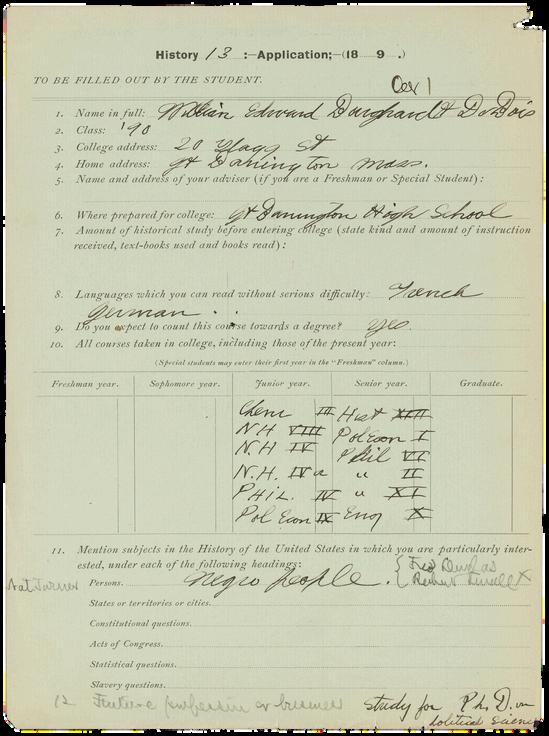 History 13 :–Application;–(18 9 .)
TO BE FILLED OUT BY THE STUDENT.
1. Name in full: William Edward Burghardt DuBois
2. Class: '90
3. College address: 20 Flagg St
4. Home address: Gt Barrington Mass.
5. Name and address of your adviser (if you are a Freshman or Special Student):
6. Where prepared for college: Gt Barrington High School
7. Amount of historical study before entering college (state kind and amount of instruction
received, text-books used and books read):
8. Languages which you can read without serious difficulty: French
German
9. Do you expect to count this course towards a degree? Yes.
10. All courses taken in college, including those of the present year:
(Special students may enter their first year in the "Freshman" column.)
Freshman year. Sophomore year. Junior year. Senior year. Graduate.
Chem III Hist XIII
N.H VIII Pol Econ I
N.H IV Phil VI
N.H. IV a " II
PHIL. IV " XI
Pol Econ IX Eng X
11. Mention subjects in the History of the United States in which you are particularly inter-
ested, under each of the following headings:
Nat Turner Persons. Negro people. { Fred Douglas
States or territories or cities.
Constitutional questions.
Acts of Congress.
Statistical questions.
Slavery questions.
12 Future profession or business Study for Ph.D. in
Political Science